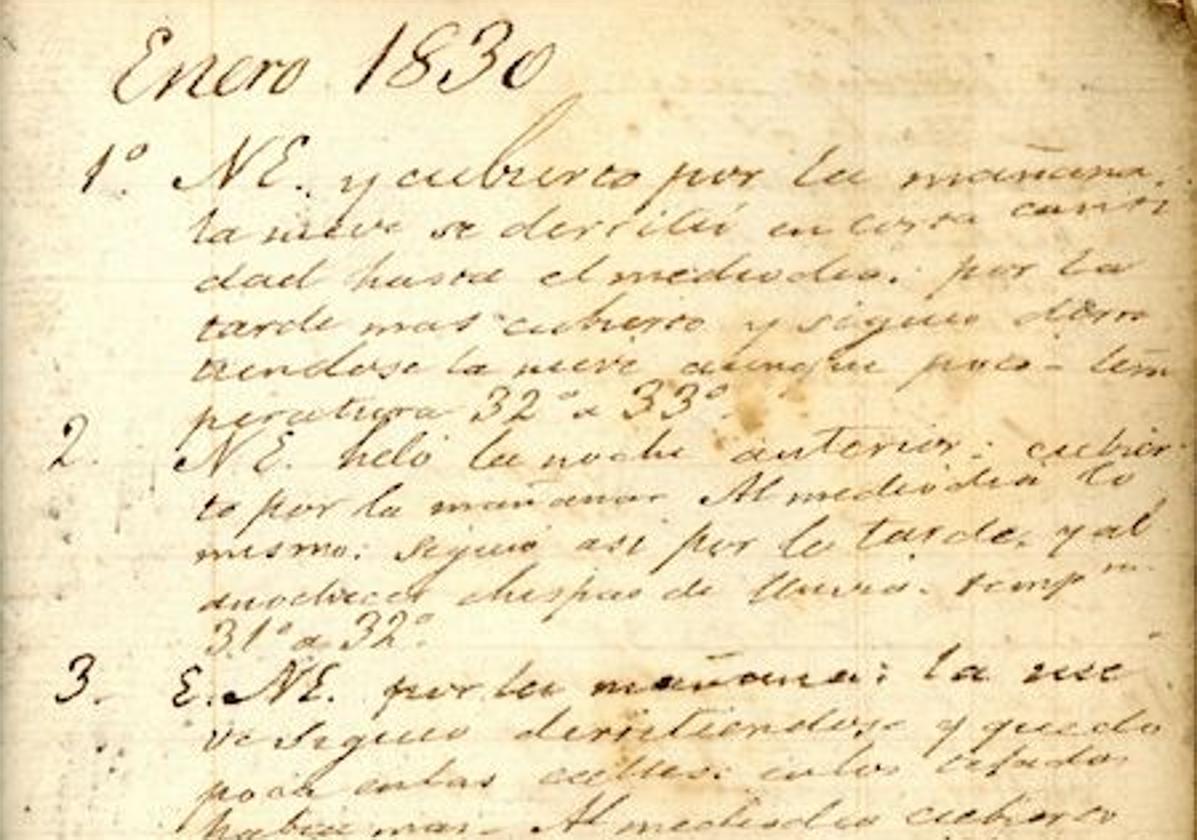 Enero 1830
1º NE. y cubierto por la mañana.
la nieve se derritió en corta canti
dad hasta el mediodia. por la
tarde mas cubierto y siguio derri
tiendose la nieve aunque poco - tem
peratura 32º a 33º.
2. NE. heló la noche anterior: cubier
to por la mañana. Al mediodia lo
mismo: siguió asi por la tarde, y al
anochecer chispas de lluvia. temp.ra
31º a 32º.
3. E.NE. por la mañana: la nie
ve siguio derritiendose y quedo
poca en las calles: en los tejados
habia mas. Al mediodia cubierto